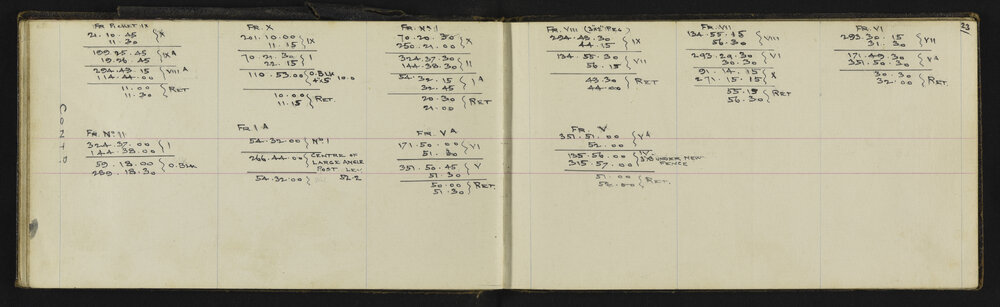 23
Fr Picket IX
21.10.45 } X
11.30
199.25.45 } IX A
19.26.45
294.43.15 } VIII A
114.44.00
11.00 } Ret
11.30
Fr. X
201.10.00 } IX
11.15
70.21.30 } I
22.15
110.53.00 O.Blk
+x5 10.0
10.00 } Ret.
11.15
Fr. No. I
70.20.30 } X
250.21.00
324.37.30 } II
144.38.30
54.32.15 } I A
32.45
20.30 } Ret
21.00
Fr. VIII (3x2" Peg)
294.48.30 } IX
44.15
134.55.30 } VII
56.15
43.30 } Ret
44.00
Fr. VII
134.55.45 } VIII
56.30
293.29.30 } VI
30.30
91.14.15 } X
271.15.15
55.15 } Ret
56.30
Fr. VI
293.30.15 } VII
31.30
171.49.30 } V A
351.50.30
30.30 } Ret
32.00
Fr. No. II
324.37.00 } I
144.38.00
59.18.00 } O.Blk
239.18.30
Fr. I A
54.32.00 } No. I
266.44.00 } Centre of
Large Angle
Post Lev
54.32.00 } 52.2
Fr. V A
171.50.00 } VI
51.30
351.50.45 } V
51.30
50.00 } Ret.
51.30
Fr. V
351.51.00 } V A
52.00
135.56.00 } IV
315.57.00 3x3 under new
fence
51.00 } Ret.
52.00